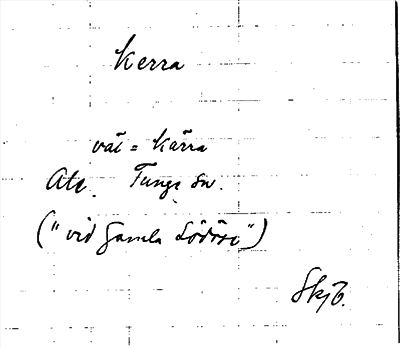 Kerra
väl = kärra
Ale. Tunge sn.
("vid Gamla Lödöse")
SkjB.